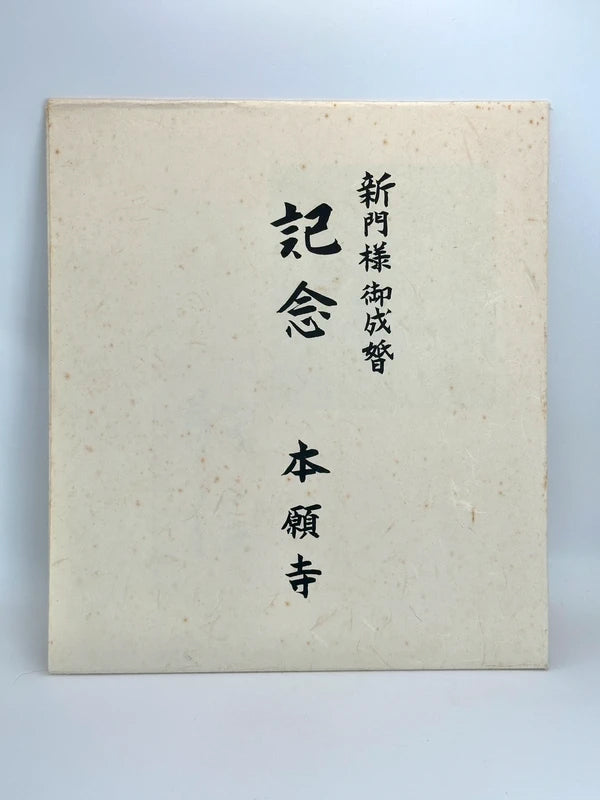 新門様御成婚
記念
本願寺